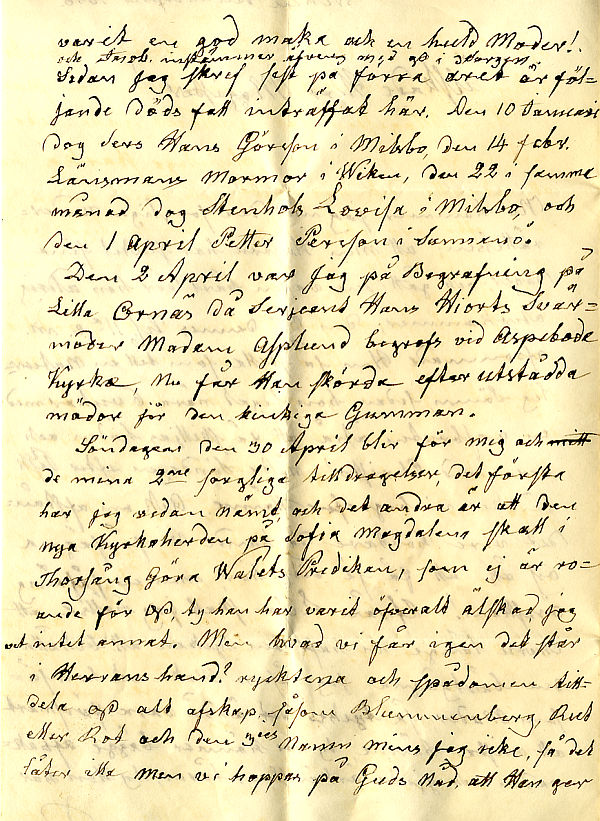 varit en god maka och en huld Moder!
och Jacob instämmer äfvens med oss i Sorgen
Sedan jag skref sest på förra året är föl-
jande döds fall inträffat här. Den 10 Januarii
dog Sers Hans Görsson i Milsbo, den 14 febr.
Länsmans Mormor i Wiken, den 22 i samma
månad dog Stenhols Lovisa i Milsbo, och
den 1 April Petter Persson i
Den 2 April var jag på Begrafning på
Lilla Ornäs då Serjeant Hans Hiorts Svär-
moder Madam Asplund begrofs vid Aspeboda
Kyrka, Nu får Han skörda efter utstådda
mödor för den kinkiga Gumman.
Söndagen den 30 April blir för mig och mitt
de mina 2ne sorgliga tilldragelser, det första
har jag redan nämt, och det andra är att den
nya Kyrkoherden på Sofia Magdalens skall i
Thorsång Göra Walets Predikan, som ej är ro-
ande för oss, ty han har varit öfveralt älskad, jag
vet intet annat. Men hvad vi får igen det står
i Herrans hand? ryktena och spådomen till-
dela oss alt afskap. såsom Blumenberg, Rut
eller Rot och den 3dies Namn mins jag icke, så det
låter illa men vi hoppas på Guds Nåd, att Han ger